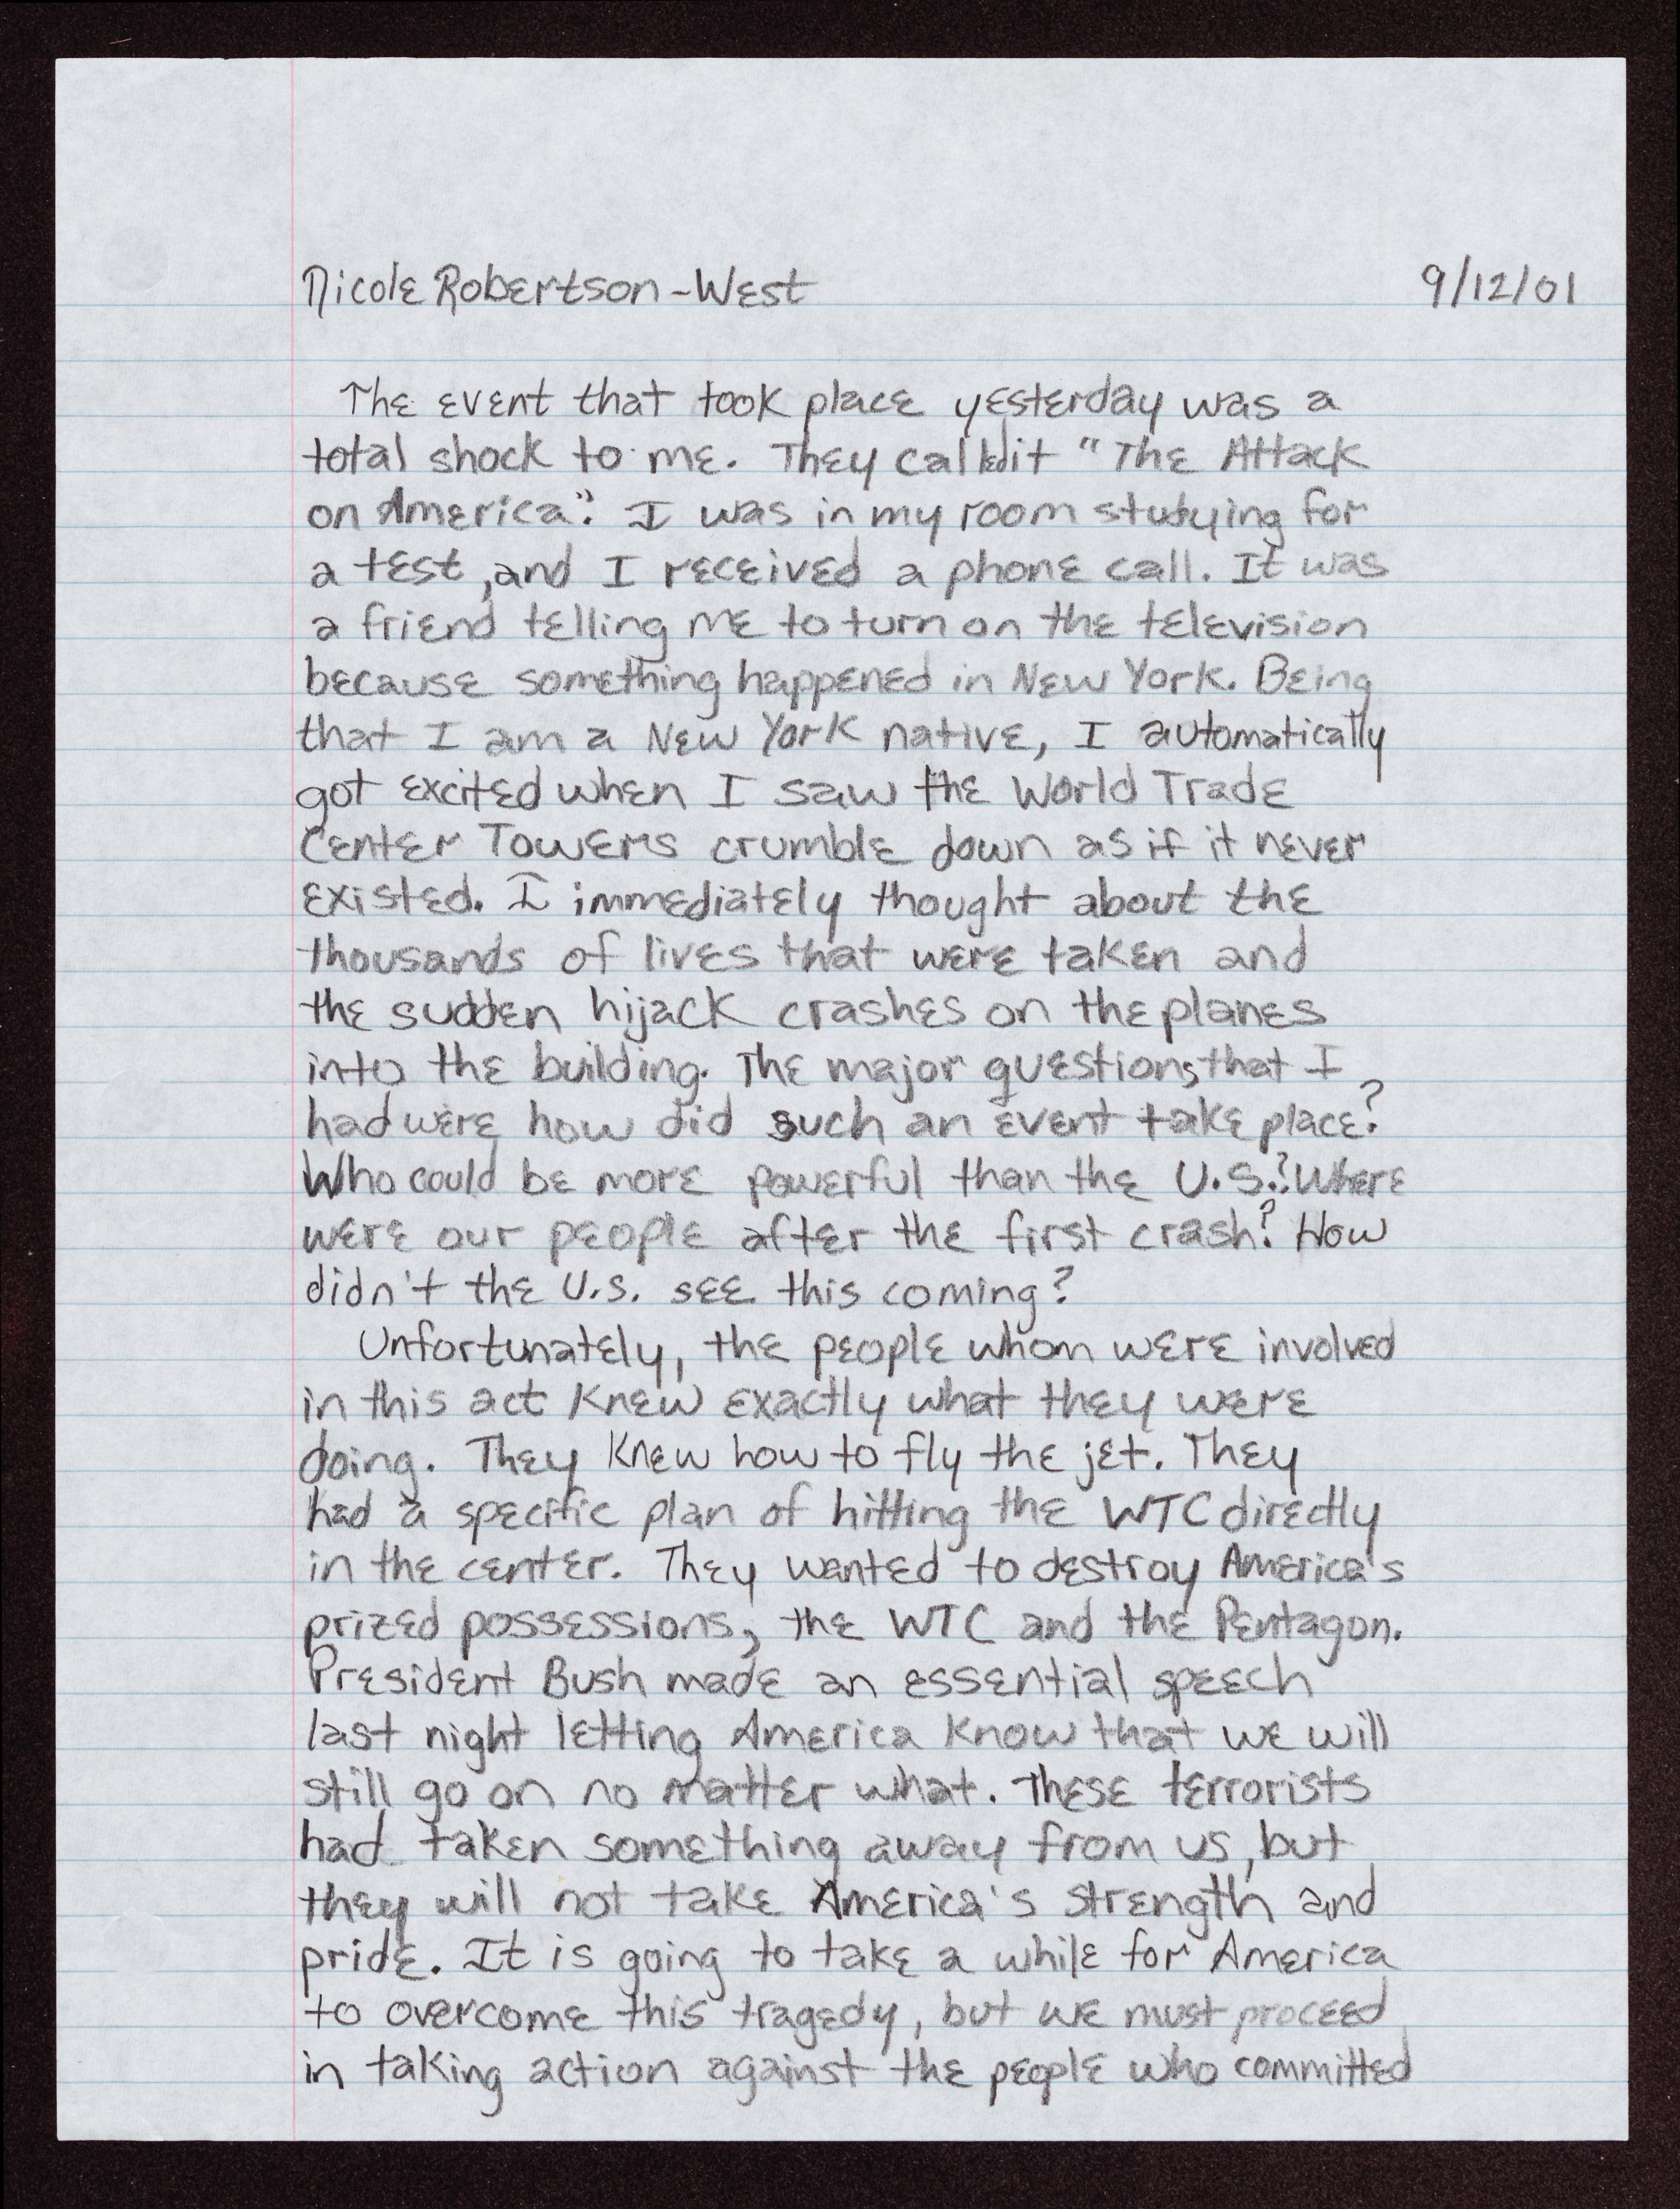 Nicole Robertson-West 9/12/01
The event that took place yesterday was a
total shock to me. They called it "The Attack
on America". I was in my room studying for
a test, and I received a phone call. It was
a friend telling me to turn on the television
because something happened in New York. Being
that I am a New York native, I automatically
got excited when I saw the World Trade
Center Towers crumble down as if it never
existed. I immediately thought about the
thousands of lives that were taken and
the sudden hijack crashes on the planes
into the building. The major questions that I
had were how did such an event take place?
Who could be more powerful than the U.S.? Where
were our people after the first crash? How
didn't the U.S. see this coming?
Unfortunately, the people whom were involved
in this act knew exactly what they were
doing. They knew how to fly the jet. They
had a specific plan of hitting the WTC directly
in the center. They wanted to destroy America's
prized possessions, the WTC and the Pentagon.
President Bush made an essential speech
last night letting America know that we will
still go on no matter what. These terrorists
had taken something away from us, but
they will not take America's strength and
pride. It is going to take a while for America
to overcome this tragedy, but we must proceed
in taking action against the people who committed